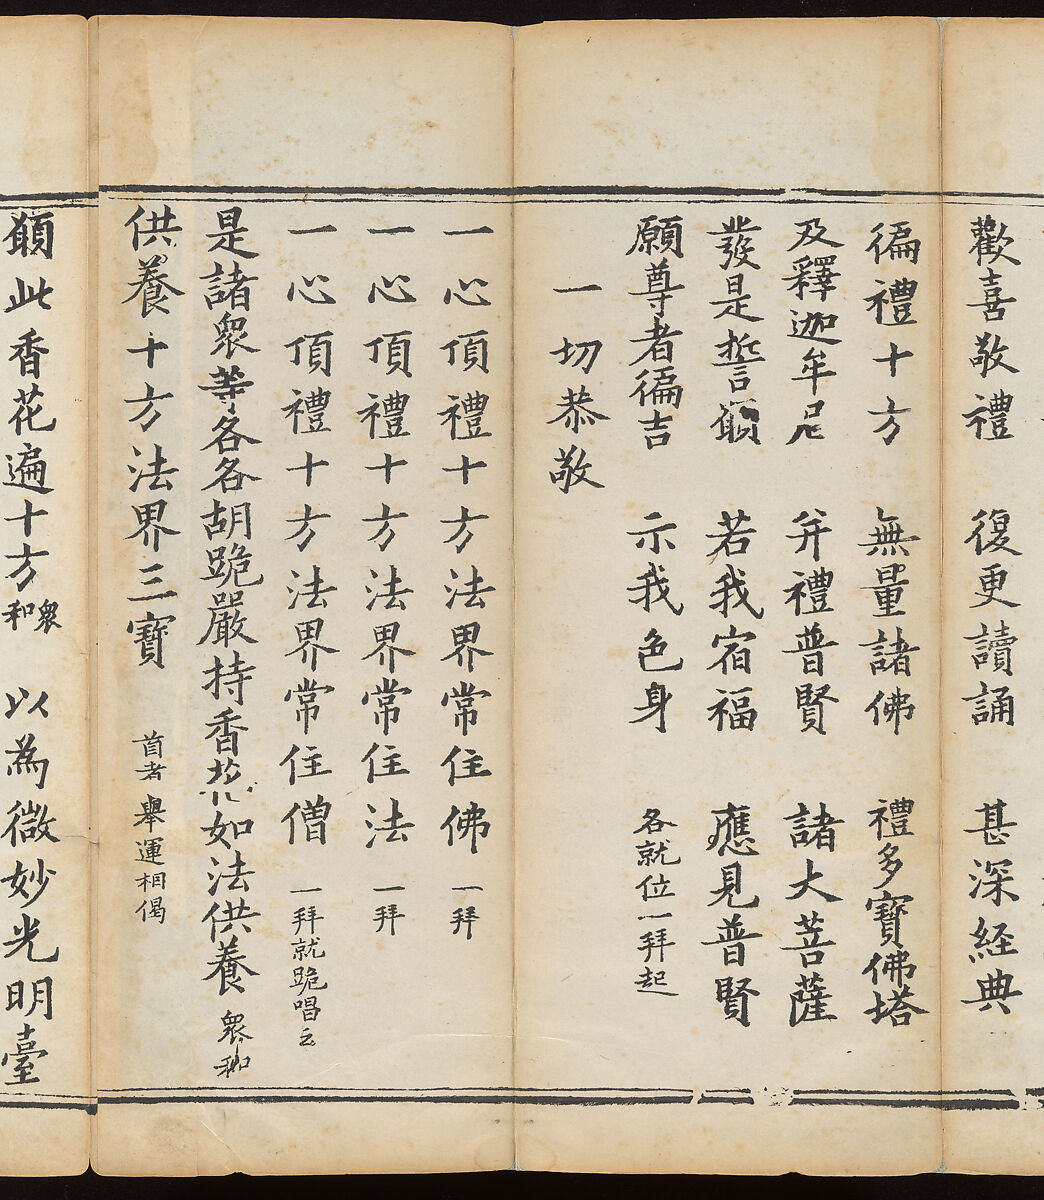 歡喜敬禮 復更讀誦 甚深経典
徧禮十方 無量諸佛 禮多寶佛塔
及釋迦牟尼 并禮普賢 諸大菩薩
發是誓願 若我宿福 應見普賢
願尊者徧吉 示我色身 各就位一拜起
一切恭敬
一心頂禮十方法界常住佛 一拜
一心頂禮十方法界常住法 一拜
一心頂禮十方法界常住僧 一拜就跪唱云
是諸眾等各各胡跪嚴持香花如法供養 眾和
供養十方法界三寶 首者舉運相偈
願此香花遍十方 眾和 以為微妙光明臺